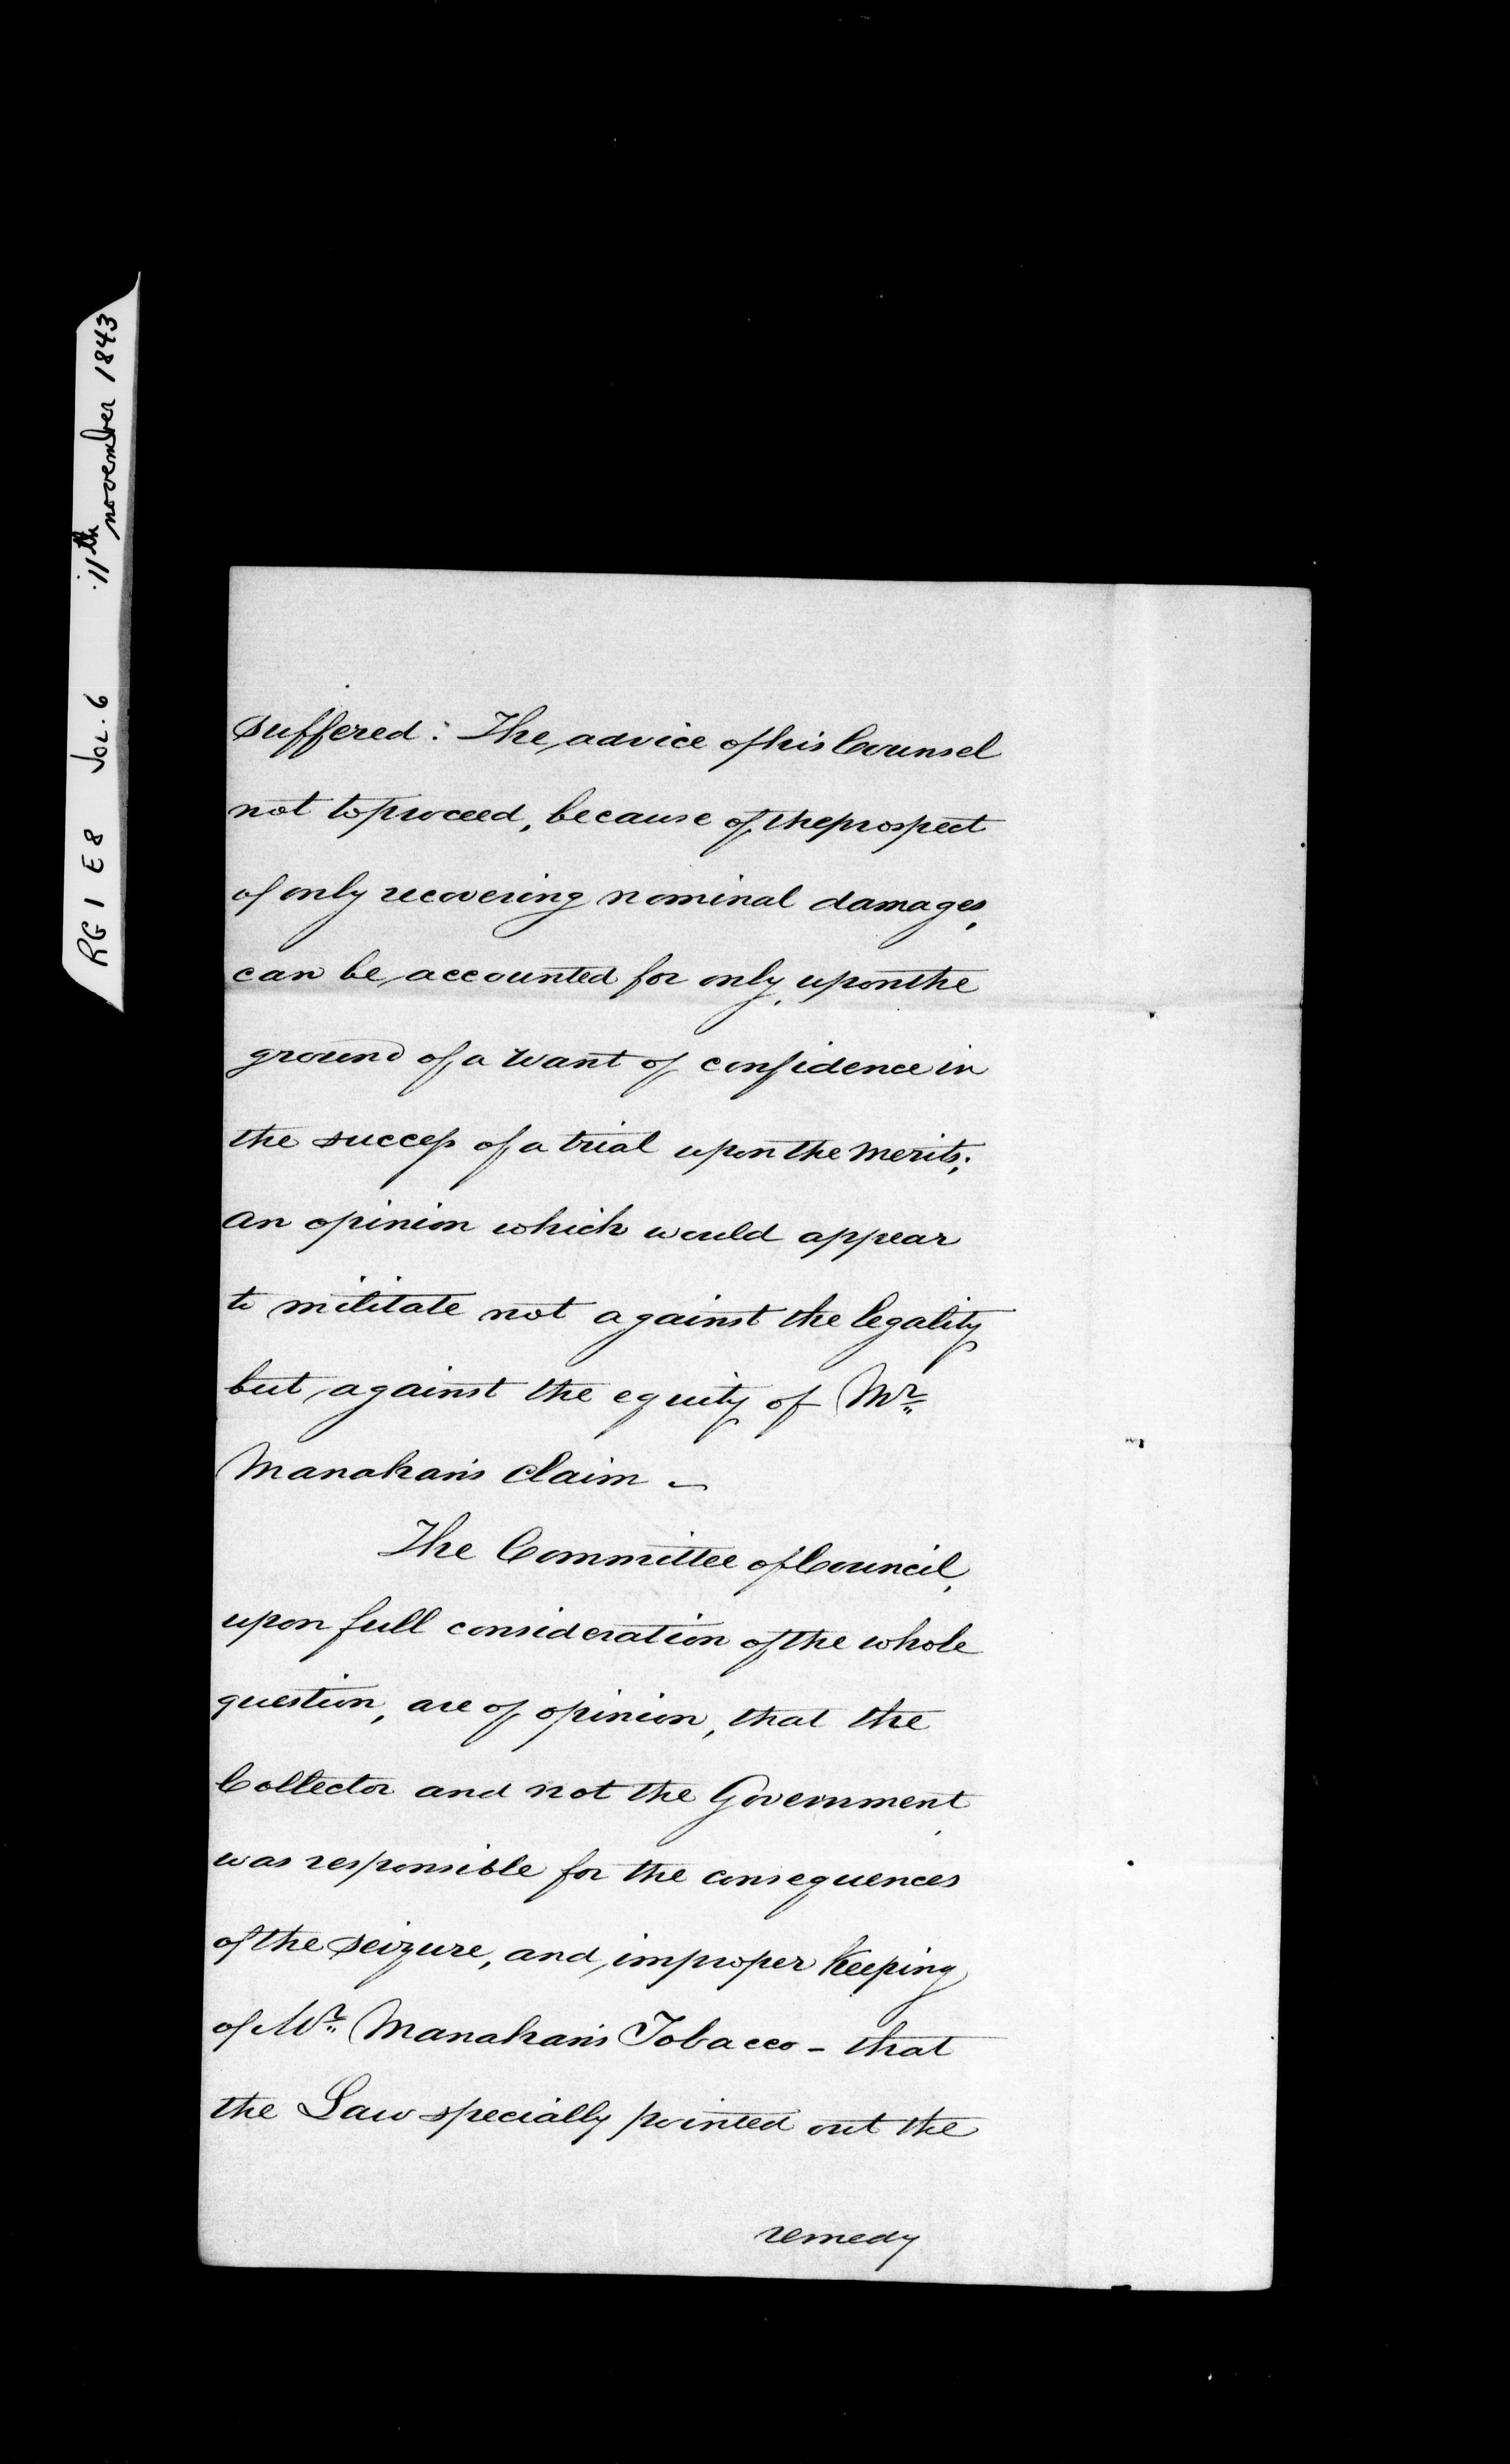 RG 1 E8 Vol. 6 11th november 1843
suffered: The advice of his Counsel
not to proceed, because of the prospect
of only recovering nominal damages,
can be accounted for only, upon the
ground of a want of confidence in
the success of a trial upon the merits;
an opinion which would appear
to militate not against the legality
but against the equity of Mr.
Manahan's claim -
The Committee of Council,
upon full consideration of the whole
question, are of opinion, that the
Collector and not the Government,
was responsible for the consequences
of the seizure, and improper keeping
of Mr. Manahan's Tobacco - that
the Law specially pointed out the
remedy